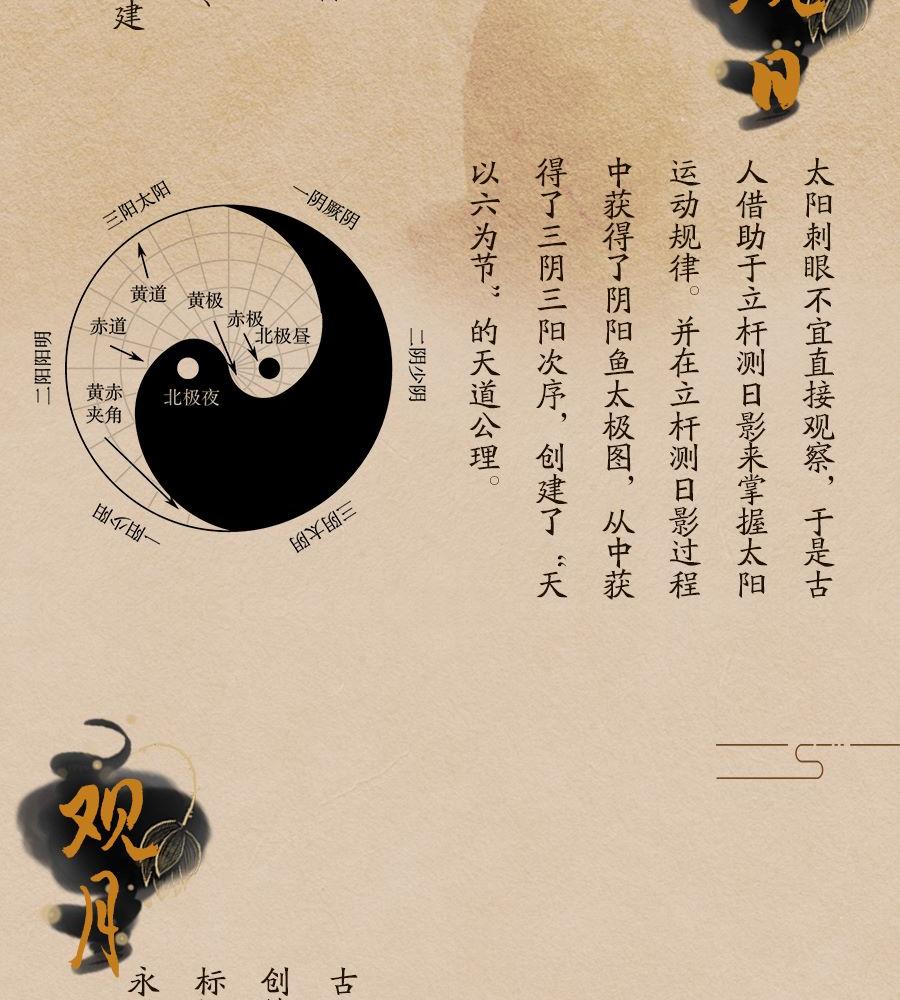 建
观
日
太阳刺眼不宜直接观察，于是古
人借助于立杆测日影来掌握太阳
运动规律。并在立杆测日影过程
中获得了阴阳鱼太极图，从中获
得了三阴三阳次序，创建了“天
以六为节”的天道公理。
三阳太阳
一阴厥阴
二阳阳明
二阴少阴
一阳少阳
三阴太阴
黄道
黄极
赤极
北极昼
赤道
黄赤
夹角
北极夜
观
月
古
创
标
永